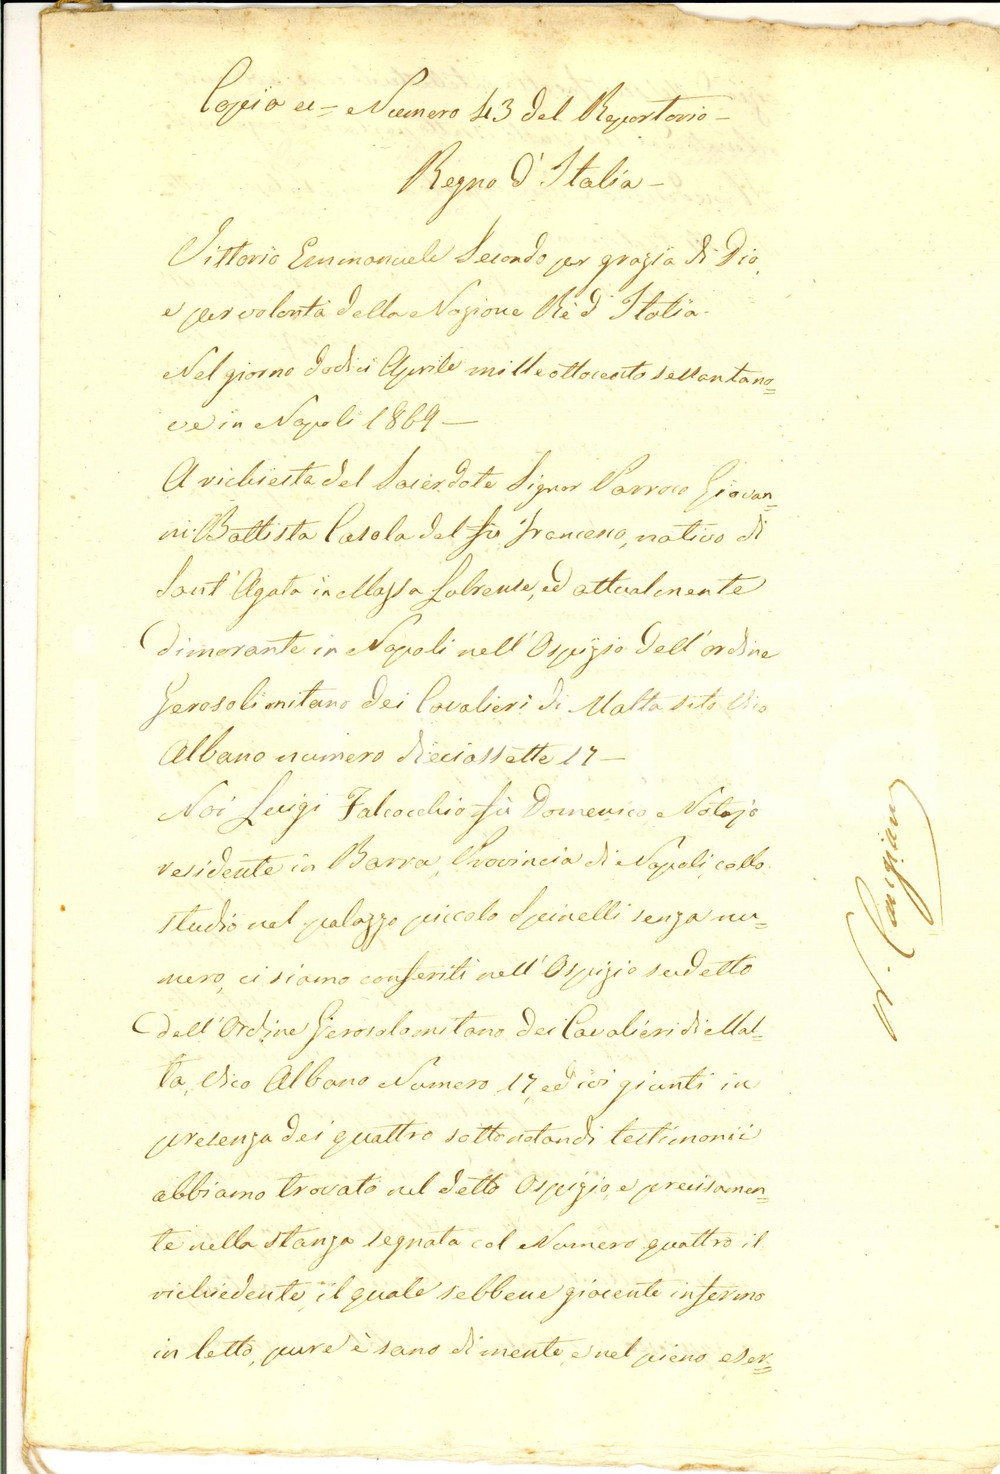 Copia = Numero 43 del Repertorio =
Regno d'Italia =
Vittorio Emmanuele Secondo per grazia di Dio,
e per volontà della Nazione Rè d'Italia.
Nel giorno dodici Aprile mille ottocento sessantano=
ve in Napoli 1869 —
A richiesta del Sacerdote Signor Parroco Giovan=
ni Battista Casola del fù Francesco, nativo di
Sant'Agata in Massa Lubrense, ed attualmente
dimorante in Napoli nell'Ospizio dell'ordine
Gerosolimitano dei Cavalieri di Malta sito Vico
Albano numero diciassette 17 —
Noi Luigi Falcocchio fù Domenico, Notajo
residente in Barra, Provincia di Napoli, collo
studio nel palazzo piccolo Spinelli senza nu=
mero, ci siamo conferiti nell'Ospizio sudetto
dell'Ordine Gerosolomitano dei Cavalieri di Mal=
ta, Vico Albano Numero 17, ed ivi giunti in
presenza dei quattro sottonotandi testimonii
abbiamo trovato nel detto Ospizio, e precisamen=
te nella stanza segnata col Numero quattro il
richiedente, il quale sebbene giacente infermo
in letto, pure è sano di mente, e nel pieno eser=